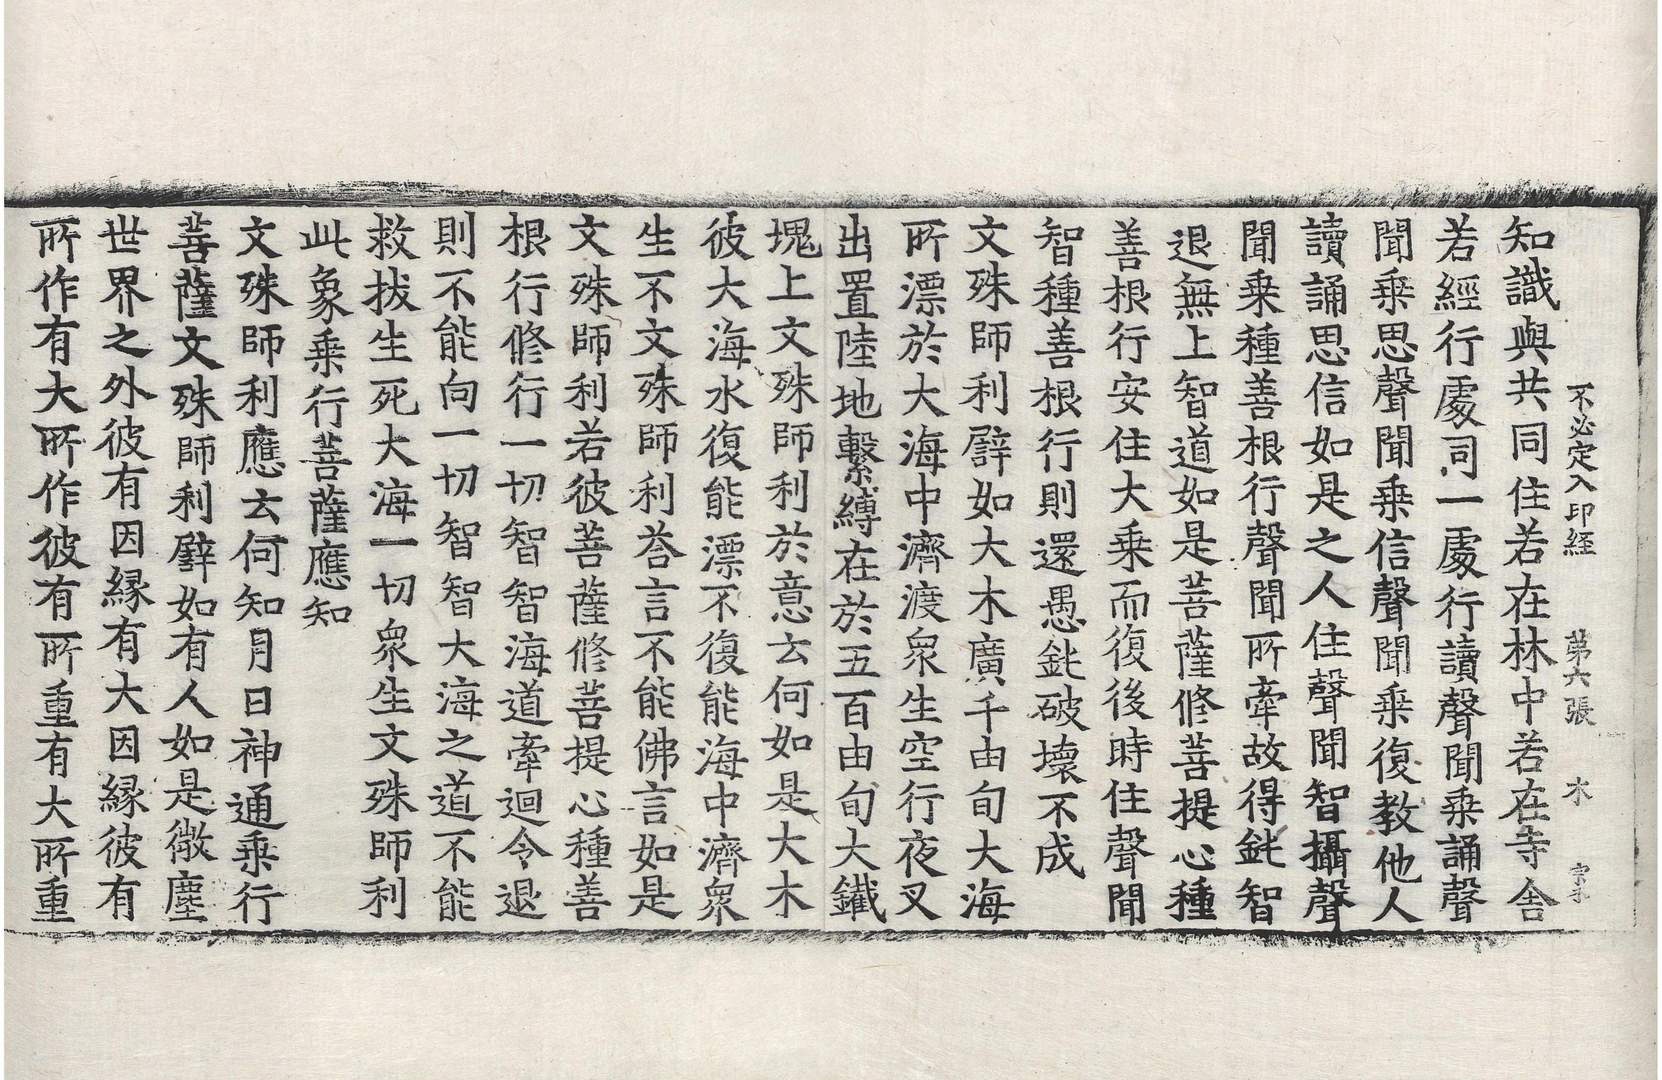 不必定入印経 第六張 木 宗手
知識與共同住若在林中若在寺舍
若經行處同一處行讀聲聞乗誦聲
聞乗思聲聞乗信聲聞乗復教他人
讀誦思信如是之人住聲聞智攝聲
聞乗種善根行聲聞所牽故得鈍智
退無上智道如是菩薩修菩提心種
善根行安住大乗而復後時住聲聞
智種善根行則還愚鈍破壞不成
文殊師利譬如大木廣千由旬大海
所漂於大海中濟渡衆生空行夜叉
出置陸地繫縛在於五百由旬大鐵
塊上文殊師利於意云何如是大木
彼大海水復能漂不復能海中濟衆
生不文殊師利荅言不能佛言如是
文殊師利若彼菩薩修菩提心種善
根行修行一切智智海道牽迴令退
則不能向一切智智大海之道不能
救拔生死大海一切衆生文殊師利
此象乗行菩薩應知
文殊師利應云何知月日神通乗行
菩薩文殊師利譬如有人如是微塵
世界之外彼有因縁有大因縁彼有
所作有大所作彼有所重有大所重